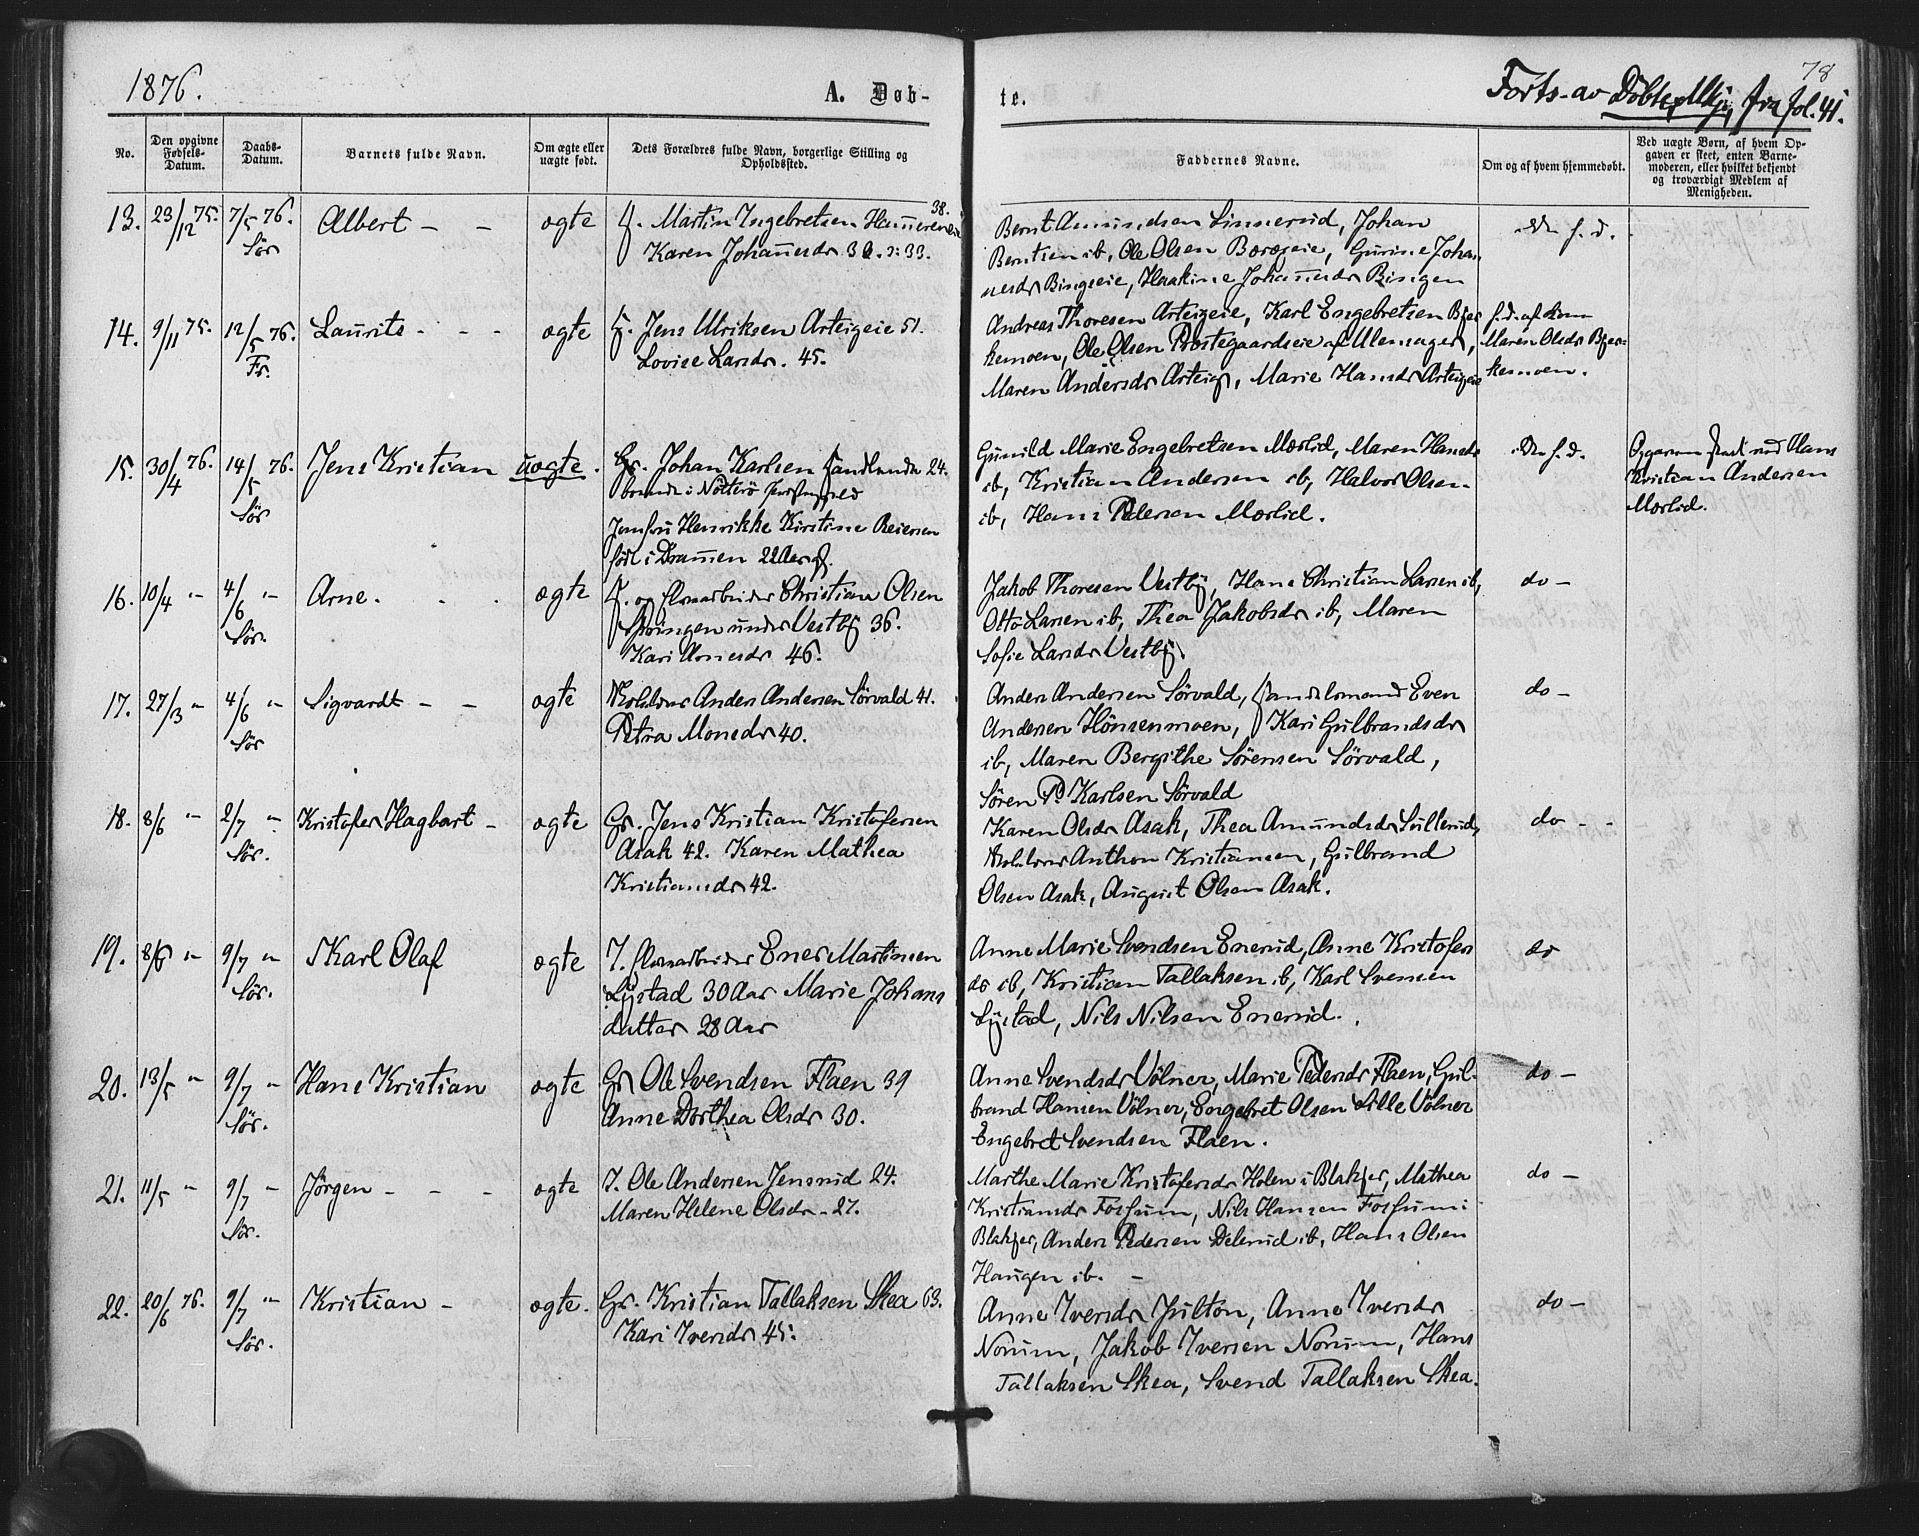 1876.
A. Døb-
te.
Forts. av Döbte, Mkj., fra fol. 41.
78
No.
Den opgivne Fødsels-Datum.
Daabs-Datum.
Barnets fulde Navn.
Om ægte eller uægte født.
Dets Forældres fulde Navn, borgerlige Stilling og Opholdssted.
Faddernes Navne.
Om og af hvem hjemmedøbt.
Ved uægte Børn, af hvem Opgaven er skeet, enten Barnemoderen, eller hvilket bekjendt og troværdigt Medlem af Menigheden.
13. 23/12 75. 7/5 76. Sör Albert - - ogte
Martin Ingebretsen 38.
Karen Johannesdr 33.
Bernt Amundsen Linnerud, Johan
Berntsen ib, Ole Olsen, Gurine Johan
nesdr Bingeie, Haakine Johannesdr Bingen
h. d.
14. 9/11 75. 12/5 76. Fr. Laurits - - - ogte
Jens Ulriksen Arteigeie 51.
Lovise Larsdr. 45.
Andreas Thoresen Arteigeie, Karl Engebretsen Bjer
kemoen, Ole Olsen Prestegaardseie af Ullensager,
Maren Andersdr Arteig, Marie Hansdr Arteigeie
h. d. af Kone
Maren Olsdr Bjer-
kemoen.
15. 30/4 76. 14/5 76. Sör Jens Kristian uogte.
Gr. Johan Karlsen 24.
boende i Nötterö
Jomfru Henrikke Kirstine Reiersen
föd i Drammen 22 Aar
Gunild Marie Engebretsen Mærlid, Maren Hansdr
ib, Kristian Andersen ib, Halvor Olsen
ib, Hans Pedersen Mærlid.
h. d.
Opgaven skeet ved Hans
Kristian Andersen
Mærlid.
16. 10/4 " 4/6 " Sör. Arne. - - - ogte
Christian Olsen
under Vestby 36.
Kari Arnesdr 46.
Jakob Thoresen Vestby, Hans Christian Larsen ib,
Otto Larsen ib, Thea Jakobsdr ib, Maren
Sofie Larsdr Vestby.
do -
17. 27/3 " 4/6 " Sör Sigvardt - - ogte
Anders Andersen Sörvald 41.
Petra Monsdr 40.
Anders Andersen Sörvald, Even
Andersen Hönsenmoen, Kari Gulbrandsdr
ib, Maren Bergithe Sörensen Sörvald,
Sören P. Karlsen Sörvald
do -
18. 8/6 " 2/7 " Sör. Kristofer Hagbart - ogte
Gr. Jens Kristian Kristofersen
Asak 42. Karen Mathea
Kristiansdr 42.
Karen Olsdr Asak, Thea Amundsdr Lullerud,
Anthon Kristiansen, Gulbrand
Olsen Asak, August Olsen Asak.
do - -
19. 8/6 " 9/7 " Sör. Karl Olaf ogte
I. Ener Martinsen
Lystad 30 Aar Marie Johans
datter 28 Aar
Anne Marie Svendsen Enerud, Anne Kristofers
dr ib, Kristian Tallaksen ib, Karl Svensen
Lystad, Nils Nilsen Enerud.
do
20. 13/5 " 9/7 " Sör. Hans Kristian ogte
Gr Ole Svendsen Flaen 39
Anne Dorthea Olsdr 30.
Anne Svendsdr Völner, Marie Pedersdr Flaen, Gul-
brand Hansen Völner, Engebret Olsen Lille Völner
Engebret Svendsen Flaen.
do -
21. 11/5 " 9/7 " Sör. Jörgen - - - ogte
I. Ole Andersen Jensrud 24.
Maren Helene Olsdr - 27.
Marthe Marie Kristofersdr Holen i Blakjer, Mathea
Kristiansdr Fossum, Nils Hansen Fossum i
Blakjer, Anders Pedersen Delerud ib, Hans Olsen
Haugen ib. -
do -
22. 20/6 76. 9/7 " Sör. Kristian - ogte.
Gr. Kristian Tallaksen Skea 63.
Kari Iversdr 45.
Anne Iversdr Julton, Anne Iversdr
Norum, Jakob Iversen Norum, Hans
Tallaksen Skea, Svend Tallaksen Skea.
do -